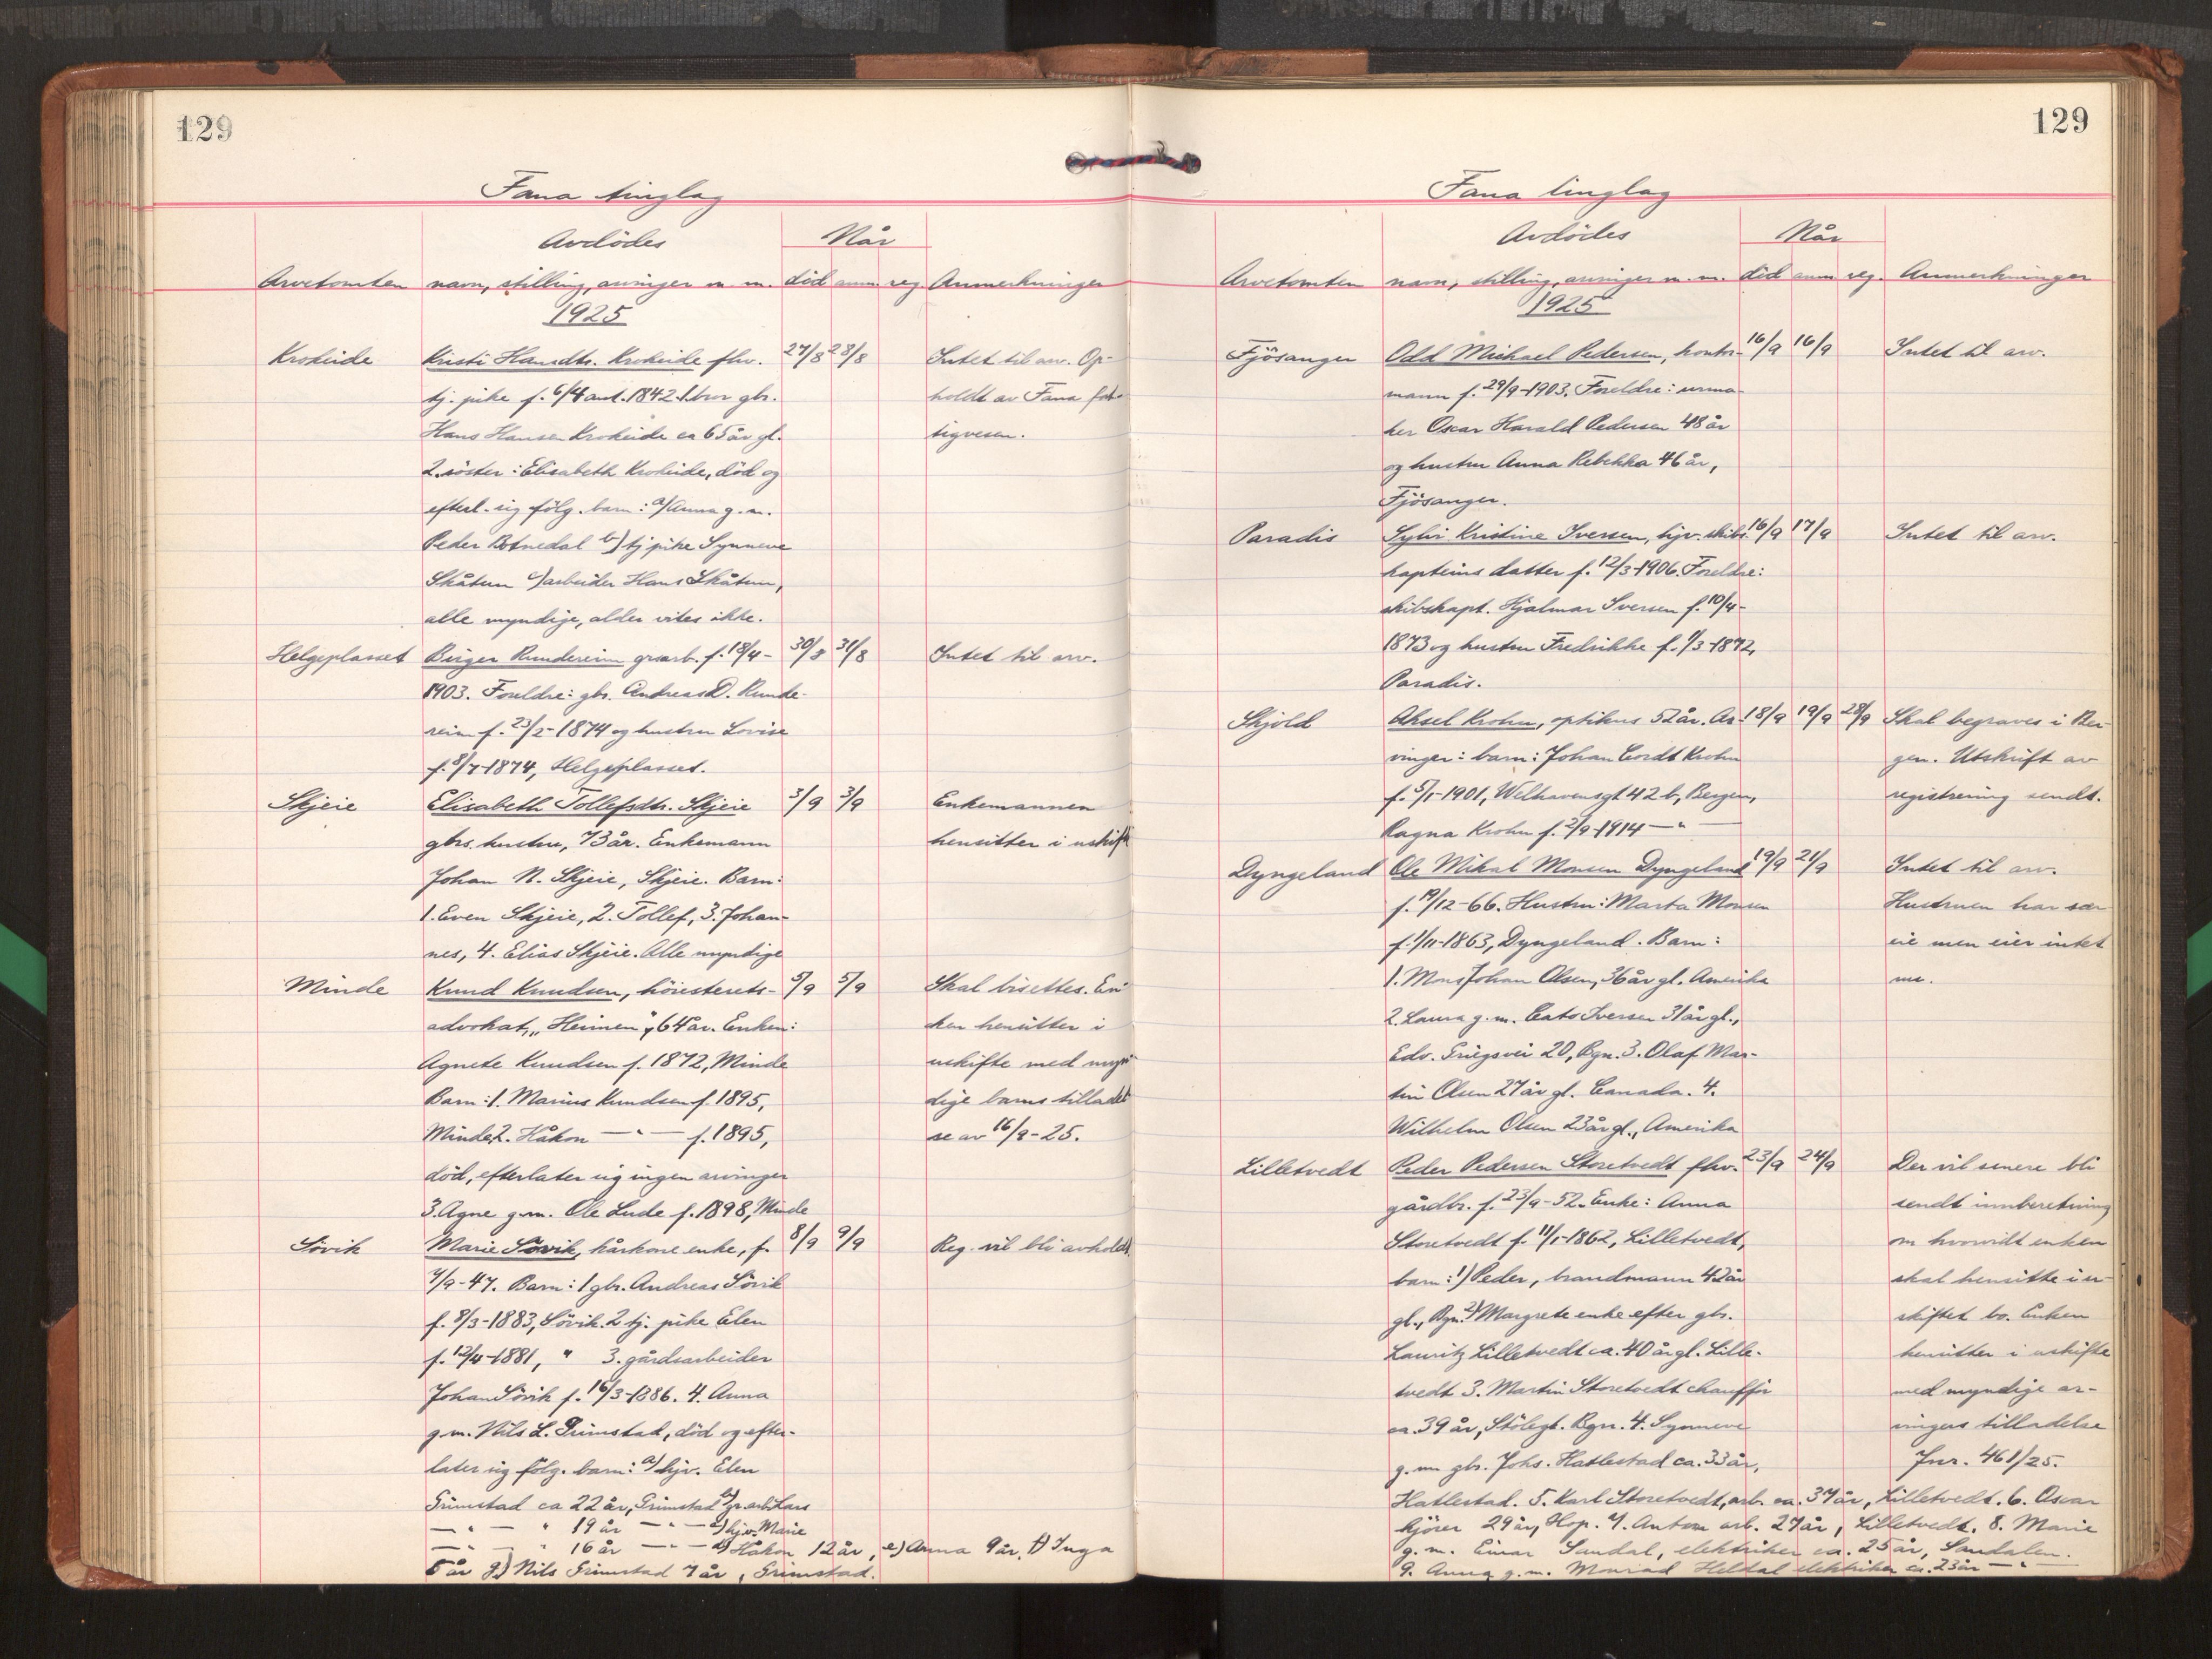 129
Fana tinglag
Avdödes
Når
Arvetomten navn, stilling, arvinger m. m. död anm. reg. Anmerkninger
1925
Krokeide Kristi Hansdtr. Krokeide fhv. 27/8 28/8 Intet til arv. Op-
tj. pike f. 6/4 1842. 1. bror gbr. holdt av Fana fat-
Hans Hansen Krokeide ca 65 år gl. tigvesen.
2. söster: Elisabeth Krokeide, död og
efterl. sig fölg. barn: a) Anna g. m.
Peder Botnedal b) tj. pike Synneve
Skåtun c) arbeider Hans Skåtun,
alle myndige, alder vites ikke.
Helgeplasset Birger Rundereim grarb. f. 18/4- 30/8 31/8 Intet til arv.
1903. Foreldre: gbr. Andreas D. Runde-
reim f. 23/2-1874 og hustru Lovise
f. 8/7-1874, Helgeplasset.
Skjeie Elisabeth Tollefsdtr. Skjeie 3/9 3/9 Enkemannen
gbrs. hustru, 73 år. Enkemann hensitter i uskifte
Johan N. Skjeie, Skjeie. Barn:
1. Even Skjeie, 2. Tollef, 3. Johan-
nes, 4. Elias Skjeie. Alle myndige
Minde Knud Knudsen, höiesterets- 5/9 5/9 Skal bisettes. En-
advokat, "Heimen", 64 år. Enken: ken hensitter i
Agnete Knudsen f. 1872, Minde uskifte med myn-
Barn: 1. Marius Knudsen f. 1895, dige barns tilladel-
Minde, 2. Håkon — " — f. 1895, se av 16/9-25.
död, efterlater sig ingen arvinger
3. Agne g.m. Ole Lude f. 1898, Minde
Sövik Marie Sövik, kårkone enke, f. 8/9 9/9 Reg. vil bli avholdt.
4/9-47. Barn: 1 gbr. Andreas Sövik
f. 8/3-1883, Sövik. 2 tj. pike Elen
f. 12/4-1881, " 3. gårdsarbeider
Johan Sövik f. 16/3-1886. 4. Anna
g.m. Nils L. Grimstad, död og efter-
later sig fölg. barn: a) hjv. Elen
Grimstad ca 22 år, Grimstad b) gr.arb. Lars
— " — " 19 år — " — c) hjv. Marie
— " — " 16 år — " — d) Håkon 12 år, e) Anna 9 år, f) Inga
5 år g) Nils Grimstad 7 år, Grimstad.
129
Fana tinglag
Avdödes
Når
Arvetomten navn, stilling, arvinger m. m. död anm reg. Anmerkninger
1925
Fjösanger Odd Michael Pedersen, kontor- 16/9 16/9 Intet til arv.
mann f. 29/9-1903. Foreldre: urma-
ker Oscar Harald Pedersen 48 år
og hustru Anna Rebekka 46 år,
Fjösanger.
Paradis Sylvi Kristine Iversen, hjv. skibs- 16/9 17/9 Intet til arv.
kapteins datter f. 12/3-1906. Foreldre:
skibskapt. Hjalmar Iversen f. 10/4-
1873 og hustru Fredrikke f. 1/3-1872,
Paradis.
Skjold Aksel Krohn, optikus 52 år. Ar- 18/9 19/9 28/9 Skal begraves i Ber-
vinger: barn: Johan Cordt Krohn gen. Utskrift av
f. 5/1-1901, Welhavensgt 42 b, Bergen, registrering sendt.
Ragna Krohn f. 2/9-1914 — " —
Dyngeland Ole Mikal Monsen Dyngeland 19/9 21/9 Intet til arv.
f. 19/12-66. Hustru: Marta Monsen Hustruen har sær
f. 1/11-1863, Dyngeland. Barn: eie men eier intet
1. Mons Johan Olsen, 36 år gl. Amerika nu.
2. Laura g. m. Cato Iversen 31 år gl.,
Edv. Griegsvei 20, Bgn. 3. Olaf Mar-
tin Olsen 27 år gl. Canada. 4.
Wilhelm Olsen 23 år gl., Amerika
Lilletvedt Peder Pedersen Storetvedt fhv. 23/9 24/9 Der vil senere bli
gårdbr. f. 23/9-52. Enke: Anna sendt innberetning
Storetvedt f. 11/1-1862, Lilletvedt, om hvorvidt enken
barn: 1) Peder, brandmann 42 år skal hensitte i u-
gl., Bgn. 2) Margrete enke efter gbr. skiftet bo. Enken
Lauritz Lilletvedt ca. 40 år gl. Lille- hensitter i uskifte
tvedt 3. Martin Storetvedt chaufför med myndige ar-
ca. 39 år, Stölegt. Bgn. 4. Synneve vingers tilladelse
g. m. gbr. Johs. Hatlestad ca. 33 år, Jnr. 461/25.
Hatlestad. 5. Karl Storetvedt, arb. ca. 37 år, Lilletvedt. 6. Oscar
kjörer 29 år, Hop. 7. Anton arb. 27 år, Lilletvedt. 8. Marie
g. m. Einar Sandal, elektriker ca. 25 år, Sandalen.
9. Anna g. m. Monrad Heldal elektriker ca. 23 år — " —